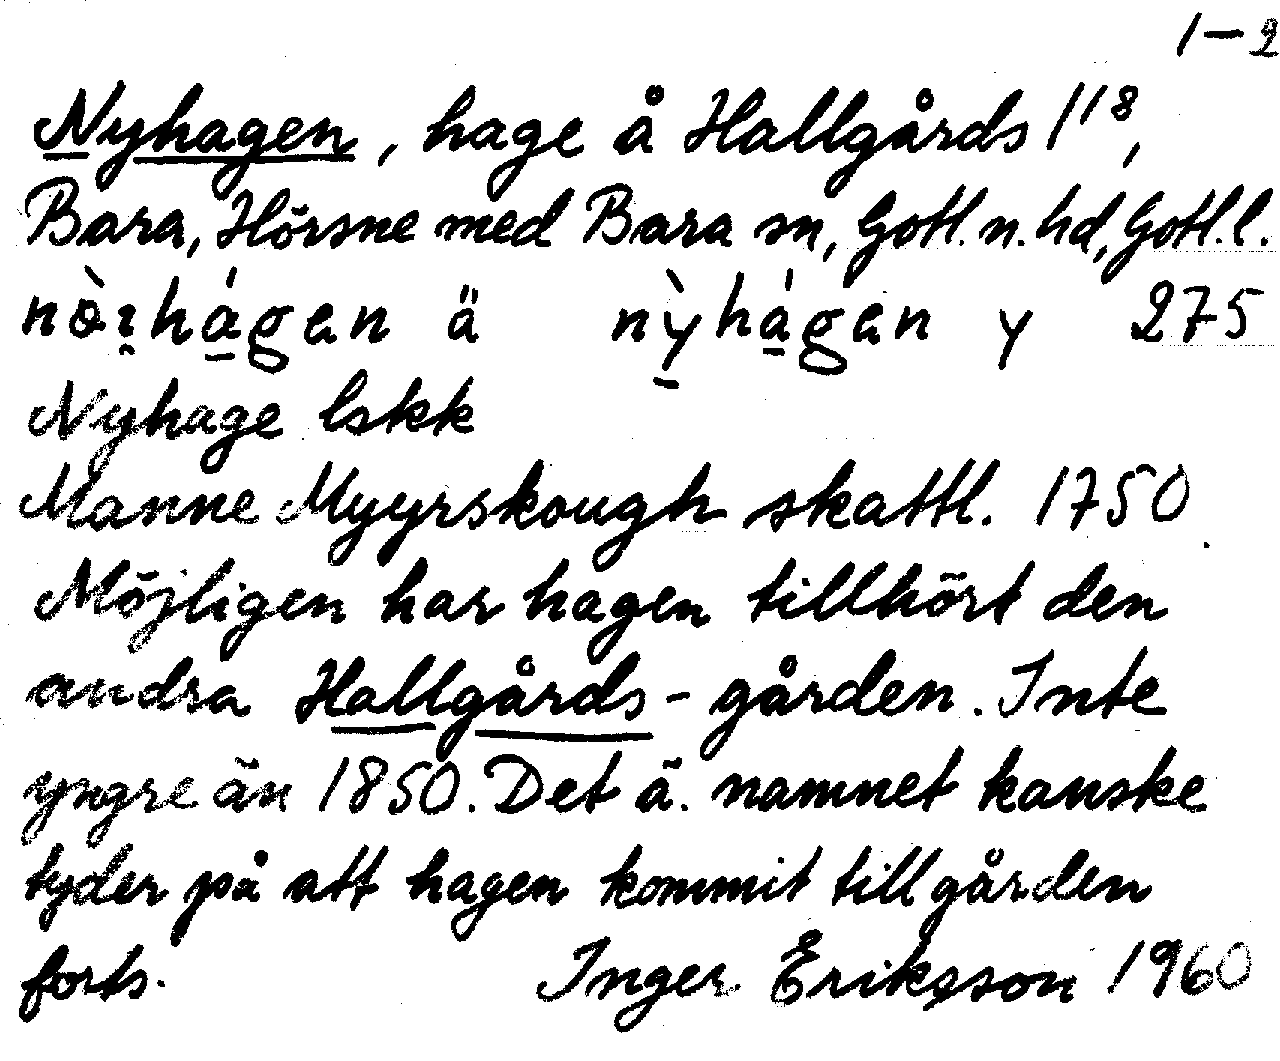 1-2
Nyhagen, hage å Hallgårds 1¹⁸,
Bara, Hörsne med Bara sn, Gotl. n. hd, Gotl. l.
nò̵ɪ̯há̱gen ä nỳ̱há̱gen y 275
Nyhage lskk
Manne Myyrskough skattl. 1750
Möjligen har hagen tillhört den
andra Hallgårds-gården. Inte
yngre än 1850. Det ä. namnet kanske
tyder på att hagen kommit till gården
forts. Inger Eriksson 1960